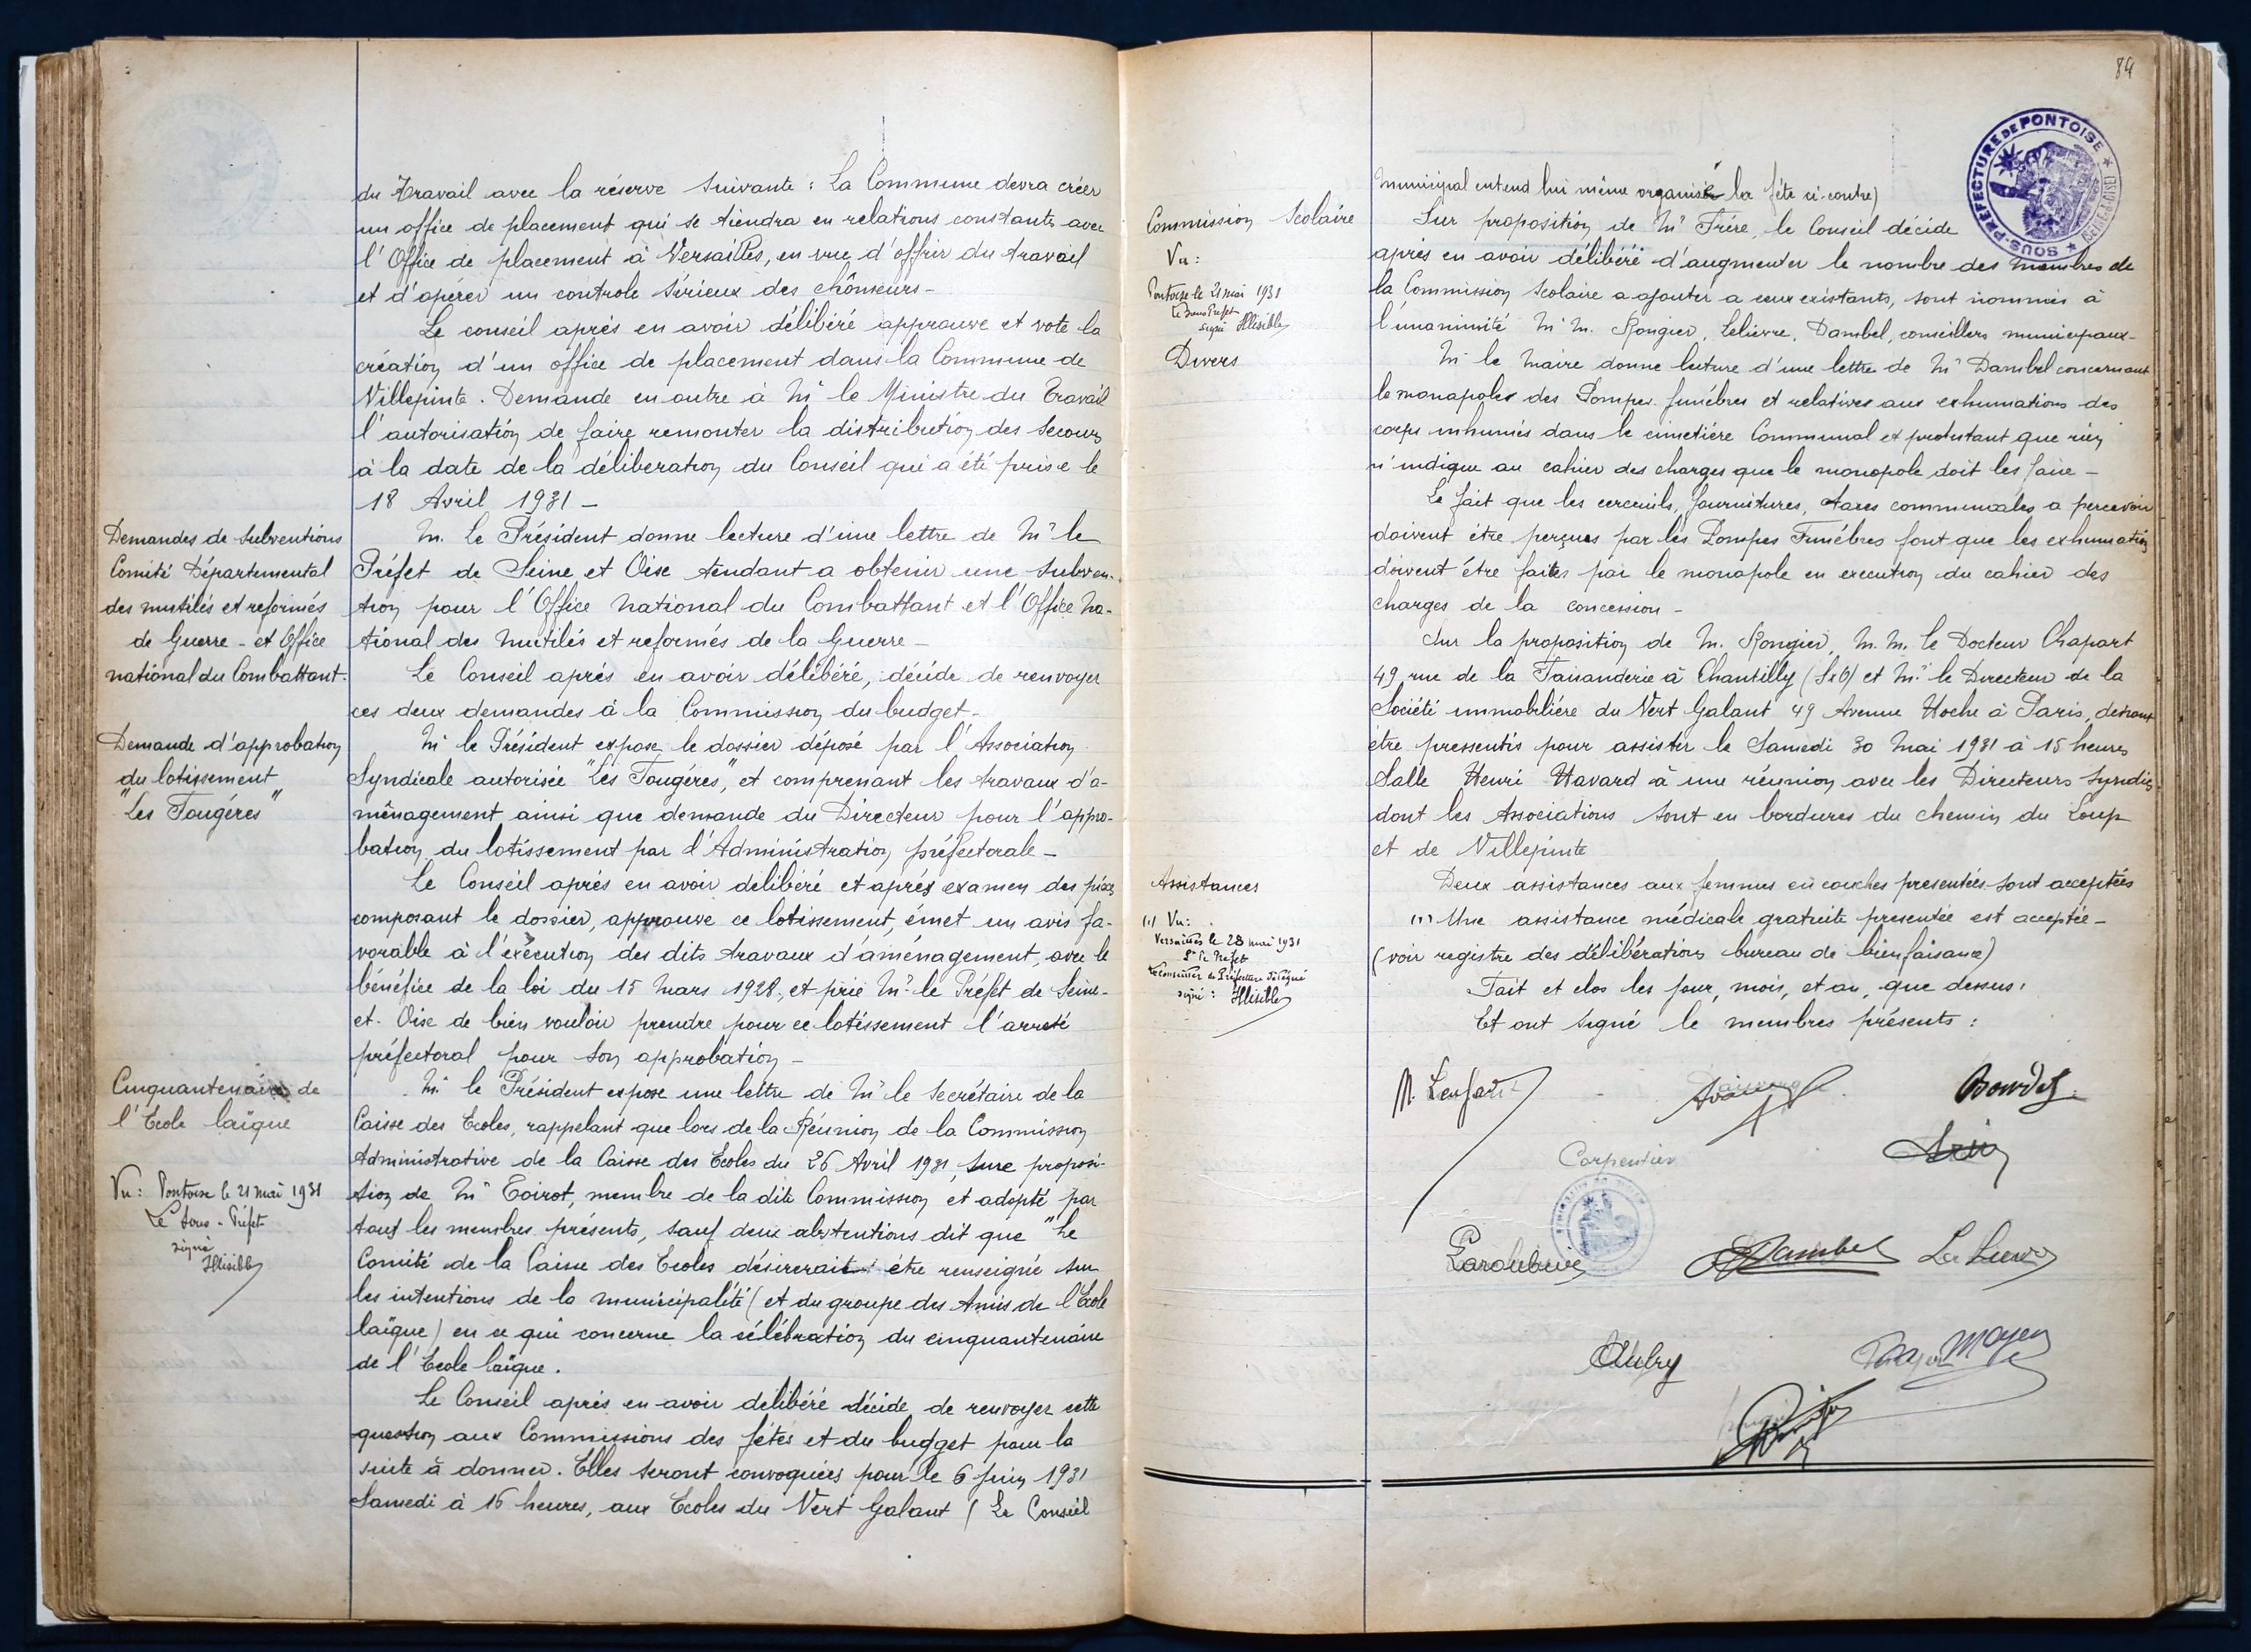 du Travail avec la réserve suivante : La Commune devra créer
un office de placement qui se tiendra en relations constantes avec
l'Office de placement à Versailles, en vue d'offrir du travail
et d'opérer un controle sérieux des chômeurs -
Le conseil aprés en avoir délibéré approuve et vote la
création d'un office de placement dans la Commune de
Villepinte. Demande en outre à Mr le Ministre du Travail
l'autorisation de faire remonter la distribution des Secours
à la date de la déliberation du Conseil qui a été prise le
18 Avril 1931 -
Demandes de Subventions
Comité Départemental
des mutilés et reformés
de Guerre - et Office
national du Combattant.
M. Le Président donne lecture d'une lettre de Mr le
Préfet de Seine et Oise tendant a obtenir une Subven-
tion pour l'Office national du Combattant et l'Office Na-
tional des Mutilés et reformés de la Guerre -
Le Conseil aprés en avoir délibéré, décide de renvoyer
ces deux demandes à la Commission du budget -
Demande d'approbation
du lotissement
"Les Fougéres"
Mr le Président expose le dossier déposé par l'Association
Syndicale autorisée "Les Fougéres", et comprenant les travaux d'a-
ménagement ainsi que demande du Directeur pour l'appro-
bation du lotissement par l'Administration préfectorale -
Le Conseil aprés en avoir délibéré et aprés examen des piéces
composant le dossier, approuve ce lotissement, émet un avis fa-
vorable à l'exécution des dits travaux d'aménagement, avec le
bénéfice de la loi du 15 Mars 1928, et prie Mr le Préfet de Seine-
et-Oise de bien vouloir prendre pour ce lotissement l'arreté
préfectoral pour son approbation -
Cinquantenaire de
l'Ecole laïque
Vu : Pontoise le 21 mai 1931
Le Sous-Préfet
signé
Illisible
Mr le Président expose une lettre de Mr le Secrétaire de la
Caisse des Ecoles, rappelant que lors de la Réunion de la Commission
Administrative de la Caisse des Ecoles du 26 Avril 1931, sure proposi-
tion de Mr Toirot, membre de la dite Commission et adopté par
tous les membres présents, sauf deux abstentions dit que "Le
Comité de la Caisse des Ecoles désirerait être renseigné sur
les intentions de la municipalité (et du groupe des Amis de l'Ecole
laïque) en ce qui concerne la célébration du cinquantenaire
de l'Ecole laïque.
Le Conseil aprés en avoir délibéré décide de renvoyer cette
question aux Commissions des fêtes et du budget pour la
suite à donner. Elles seront convoquées pour le 6 juin 1931
Samedi à 16 heures, aux Ecoles du Vert Galant ( Le Conseil
84
SOUS-PRÉFECTURE DE PONTOISE
SEINE-&-OISE
municipal entend lui même organiser la fête ci-contre)
Commission Scolaire
Vu :
Pontoise le 21 mai 1931
Le Sous Préfet
signé Illisible
Sur proposition de Mr Frére, le Conseil décide
aprés en avoir délibéré d'augmenter le nombre des membres de
la Commission Scolaire a ajouter a ceux existants, sont nommés à
l'unanimité M.M. Rongier, Lelievre, Dambel, conseillers municipaux -
Divers
Mr le Maire donne lecture d'une lettre de Mr Dambel concernant
le monopole des Pompes funébres et relatives aux exhumations des
corps inhumés dans le cimetiére Communal et protestant que rien
n'indique au cahier des charges que le monopole doit les faire -
Le fait que les cercueils, fournitures, taxes communales a percevoir
doivent être perçues par les Pompes Funébres font que les exhumations
doivent être faites par le monopole en execution du cahier des
charges de la concession -
Sur la proposition de M. Rongier, M.M. le Docteur Chapart
49 rue de la Faisanderie à Chantilly (S&O) et Mr le Directeur de la
Société immobiliére du Vert Galant 49 Avenue Hoche à Paris, devront
être pressentis pour assister le Samedi 30 Mai 1931 à 15 heures
Salle Henri Havard à une réunion avec les Directeurs Syndics
dont les Associations sont en bordures du chemin du Loup
et de Villepinte
Assistances
Deux assistances aux femmes en couches presentées sont acceptées
(1) Vu :
Versailles le 28 mai 1931
Pr le Préfet
Le Conseiller de Préfecture Délégué
signé : Illisible
(1) Une assistance médicale gratuite presentée est acceptée -
(voir registre des délibérations bureau de bienfaisance)
Fait et clos les jour, mois, et an, que dessus,
Et ont signé le membres présents :
M. Lenfant
Bourdef.
Carpentier
Dambel
Aubry
Mayer